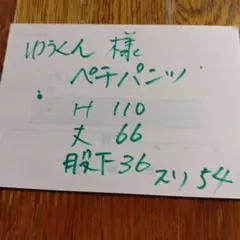 ゆうくん 様
ペチパンツ
H 110
丈 66
股下36 スソ54